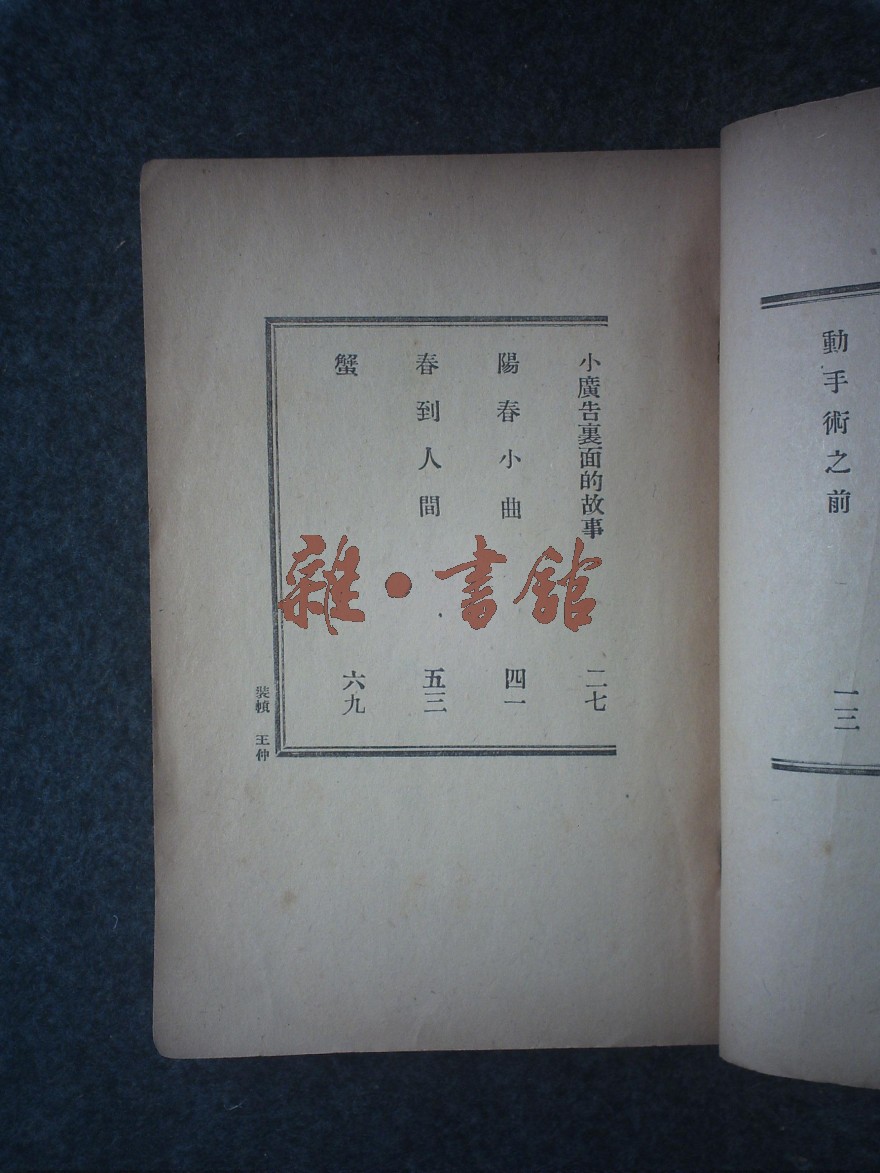 動手術之前 一三
小廣告裏面的故事 二七
陽春小曲 四一
春到人間 五三
蟹 六九
裝幀 王仲
雜·書館